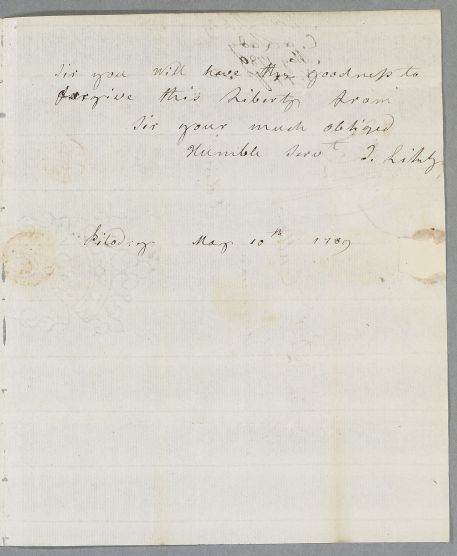 Sir you will have the goodness to
forgive this Liberty from
Sir your much obliged
Humble Servt
May 10th 1789